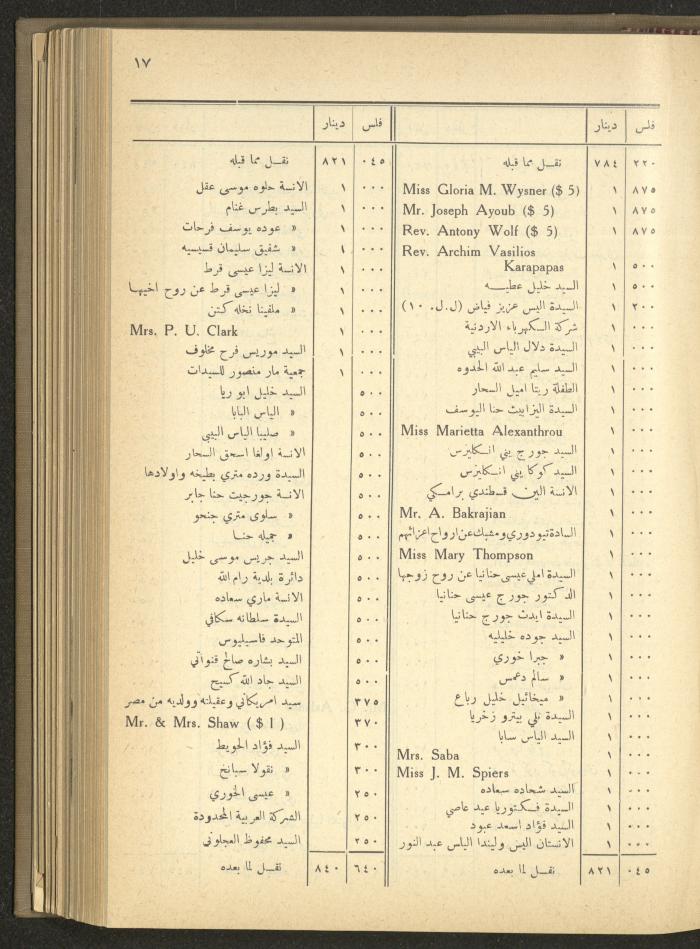 ١٧
فلس دينار
٢٢٠ ٧٨٤ نقل مما قبله
٨٧٥ ١ Miss Gloria M. Wysner ($ 5)
٨٧٥ ١ Mr. Joseph Ayoub ($ 5)
٨٧٥ ١ Rev. Antony Wolf ($ 5)
Rev. Archim Vasilios
٥٠٠ ١ Karapapas
٥٠٠ ١ السيد خليل عطيه
٢٠٠ ١ السيدة اليس عزيز فياض (ل.ل. ١٠)
٠٠٠ ١ شركة الكهرباء الاردنية
٠٠٠ ١ السيدة دلال الياس البيبي
٠٠٠ ١ السيد سليم عبد الله الخدوه
٠٠٠ ١ الطفلة ريتا اميل السحار
٠٠٠ ١ السيدة اليزابيث حنا اليوسف
٠٠٠ ١ Miss Marietta Alexanthrou
٠٠٠ ١ السيد جورج يني انكليزس
٠٠٠ ١ السيد كوكا يني انكليزس
٠٠٠ ١ الانسة الين قسطندي برامكي
٠٠٠ ١ Mr. A. Bakrajian
٠٠٠ ١ السادة تيودوري ومشبك عن ارواح اعزائهم
٠٠٠ ١ Miss Mary Thompson
٠٠٠ ١ السيدة املي عيسى حنانيا عن روح زوجها
٠٠٠ ١ الدكتور جورج عيسى حنانيا
٠٠٠ ١ السيدة ايدث جورج حنانيا
٠٠٠ ١ السيد جوده خليليه
٠٠٠ ١ « جبرا خوري
٠٠٠ ١ « سالم دعمس
٠٠٠ ١ « ميخائيل خليل رباع
٠٠٠ ١ السيدة نلي بيترو زخريا
٠٠٠ ١ السيد الياس سابا
٠٠٠ ١ Mrs. Saba
٠٠٠ ١ Miss J. M. Spiers
٠٠٠ ١ السيد شحاده سعاده
٠٠٠ ١ السيدة فكتوريا عيد عاصي
٠٠٠ ١ السيد فؤاد اسعد عبود
٠٠٠ ١ الانستان اليس وليندا الياس عبد النور
٠٤٥ ٨٢١ نقل لما بعده
فلس دينار
٠٤٥ ٨٢١ نقل مما قبله
٠٠٠ ١ الانسة حلوه موسى عقل
٠٠٠ ١ السيد بطرس غنام
٠٠٠ ١ « عوده يوسف فرحات
٠٠٠ ١ « شفيق سليمان قسيسيه
٠٠٠ ١ الانسة ليزا عيسى قرط
٠٠٠ ١ « ليزا عيسى قرط عن روح اخيها
٠٠٠ ١ « ملفينا نخله كتن
٠٠٠ ١ Mrs. P. U. Clark
٠٠٠ ١ السيد موريس فرح مخلوف
٠٠٠ ١ جمعية مار منصور للسيدات
٥٠٠ السيد خليل ابو ريا
٥٠٠ « الياس البابا
٥٠٠ « صليبا الياس البيبي
٥٠٠ الانسة اولغا اسحق السحار
٥٠٠ السيدة ورده متري بطيخه واولادها
٥٠٠ الانسة جورجيت حنا جابر
٥٠٠ « سلوى متري جنحو
٥٠٠ « جميله حنا
٥٠٠ السيد جريس موسى خليل
٥٠٠ دائرة بلدية رام الله
٥٠٠ الانسة ماري سعاده
٥٠٠ السيدة سلطانه سكافي
٥٠٠ المتوحد فاسيليوس
٥٠٠ السيد بشاره صالح قنواتي
٥٠٠ السيد جاد الله كسيح
٣٧٥ سيد امريكاني وعقيلته ووالديه من مصر
٣٧٠ Mr. & Mrs. Shaw ($ 1)
٣٠٠ السيد فؤاد الحويط
٣٠٠ « نقولا سبانخ
٢٥٠ « عيسى الخوري
٢٥٠ الشركة العربية المحدودة
٢٥٠ السيد محفوظ العجلوني
٦٤٠ ٨٤٠ نقل لما بعده